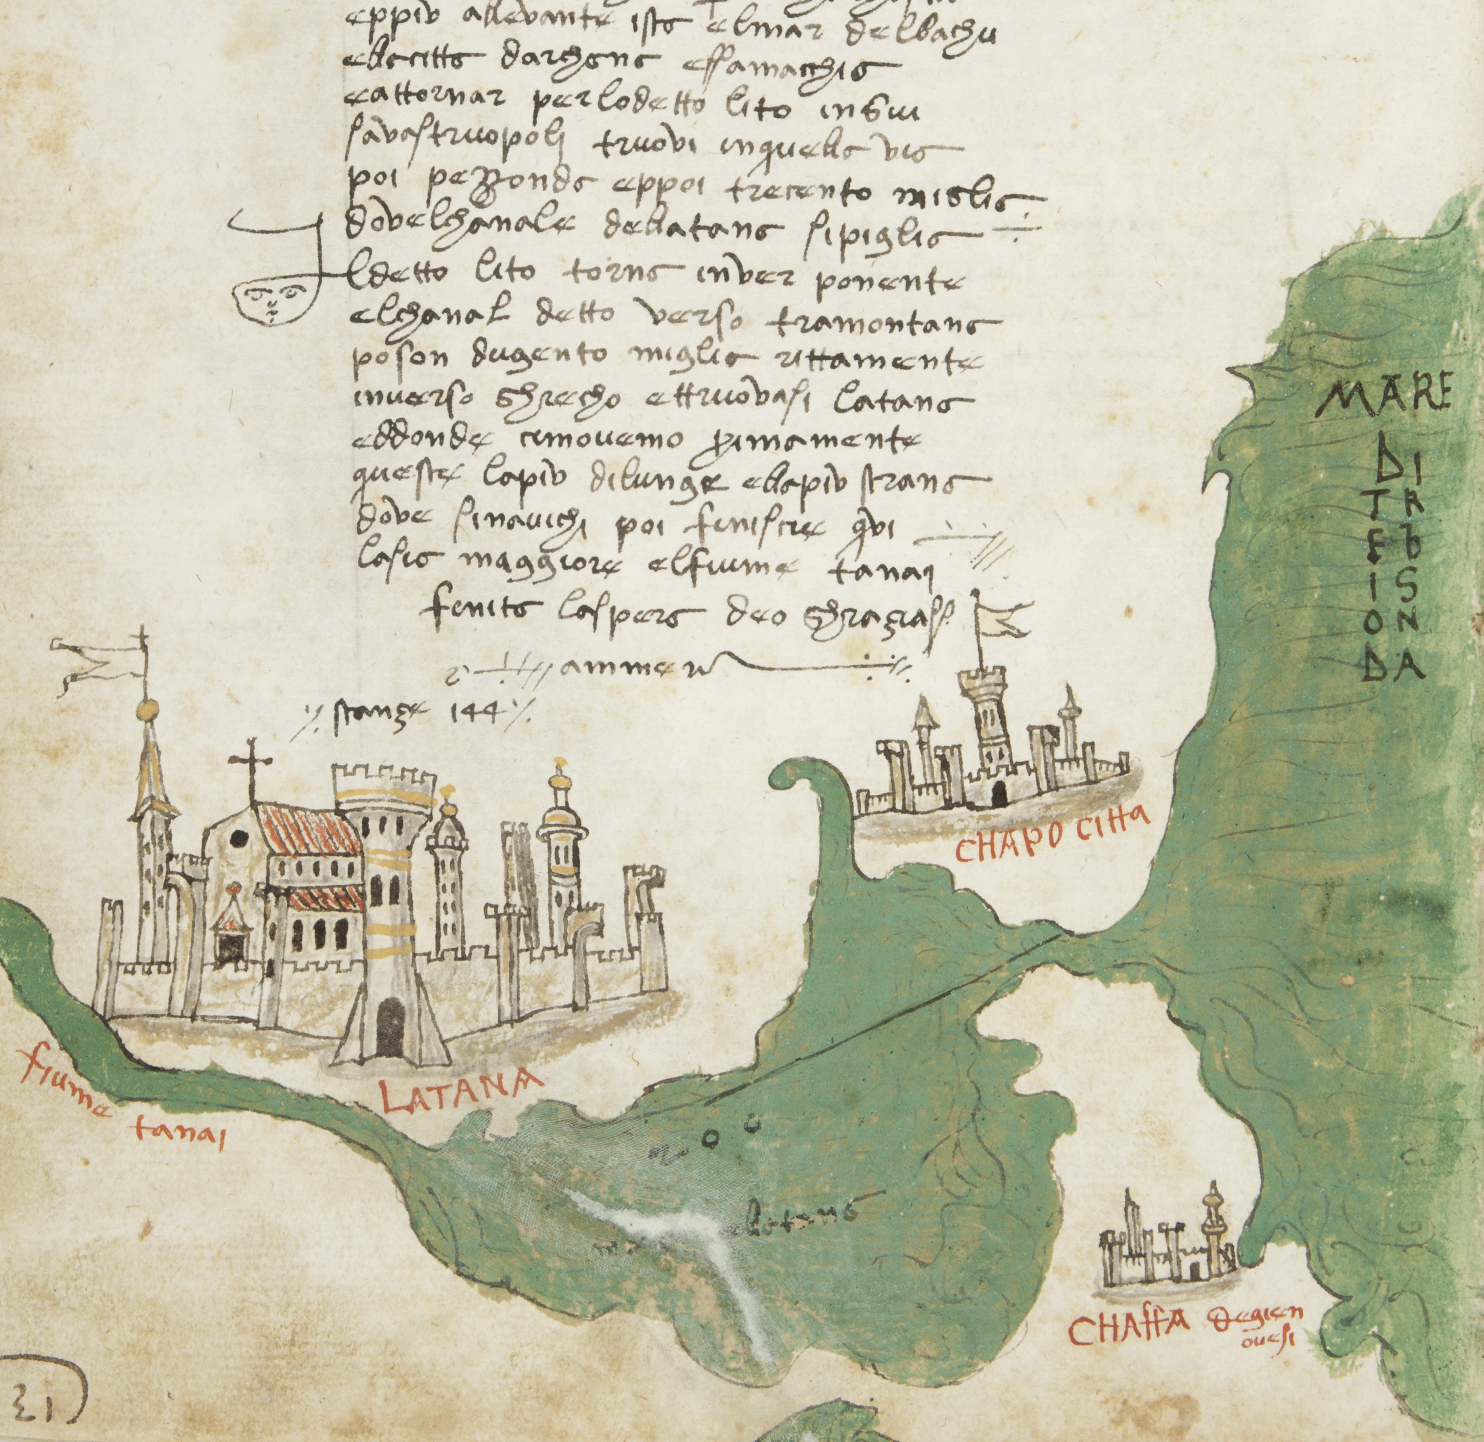 eppiu allevante ista elmar delbachu
ella citta darchona essamachia
eattornar perlodetto lito insui
savastruopoli truovi inquella via
poi pezzonda eppoi trecento miglia
dovelchanale dellatana sipiglia
ldetto lito torna inver ponente
elchanal detto verso tramontana
poson dugento miglia rittamente
inverso ghrecho ettruovasi latana
eddonde cimovemo primamente
questa lapiu dilunge ellapiu strana
dove sinavichi poi finiscie qui
lasia maggiore elfiume tanai
finita laspera deo ghrazias
ammen
stanze 144
MARE
DI
TR
Eb
IS
ON
DA
CHAPO CITTA
LATANA
fiume
tanai
latana
CHAFFA degien
ovesi